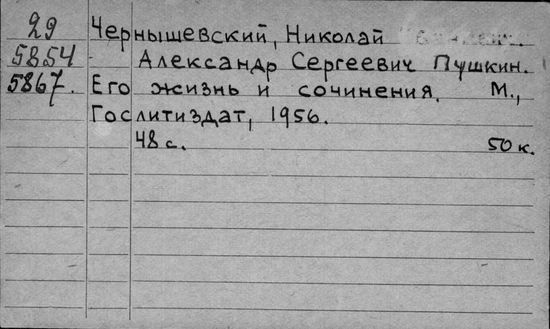 29 Чернышевский, Николай
5854 Александр Сергеевич Пушкин.
5867. Его жизнь и сочинения. М.,
Гослитиздат, 1956.
48 с. 50 к.